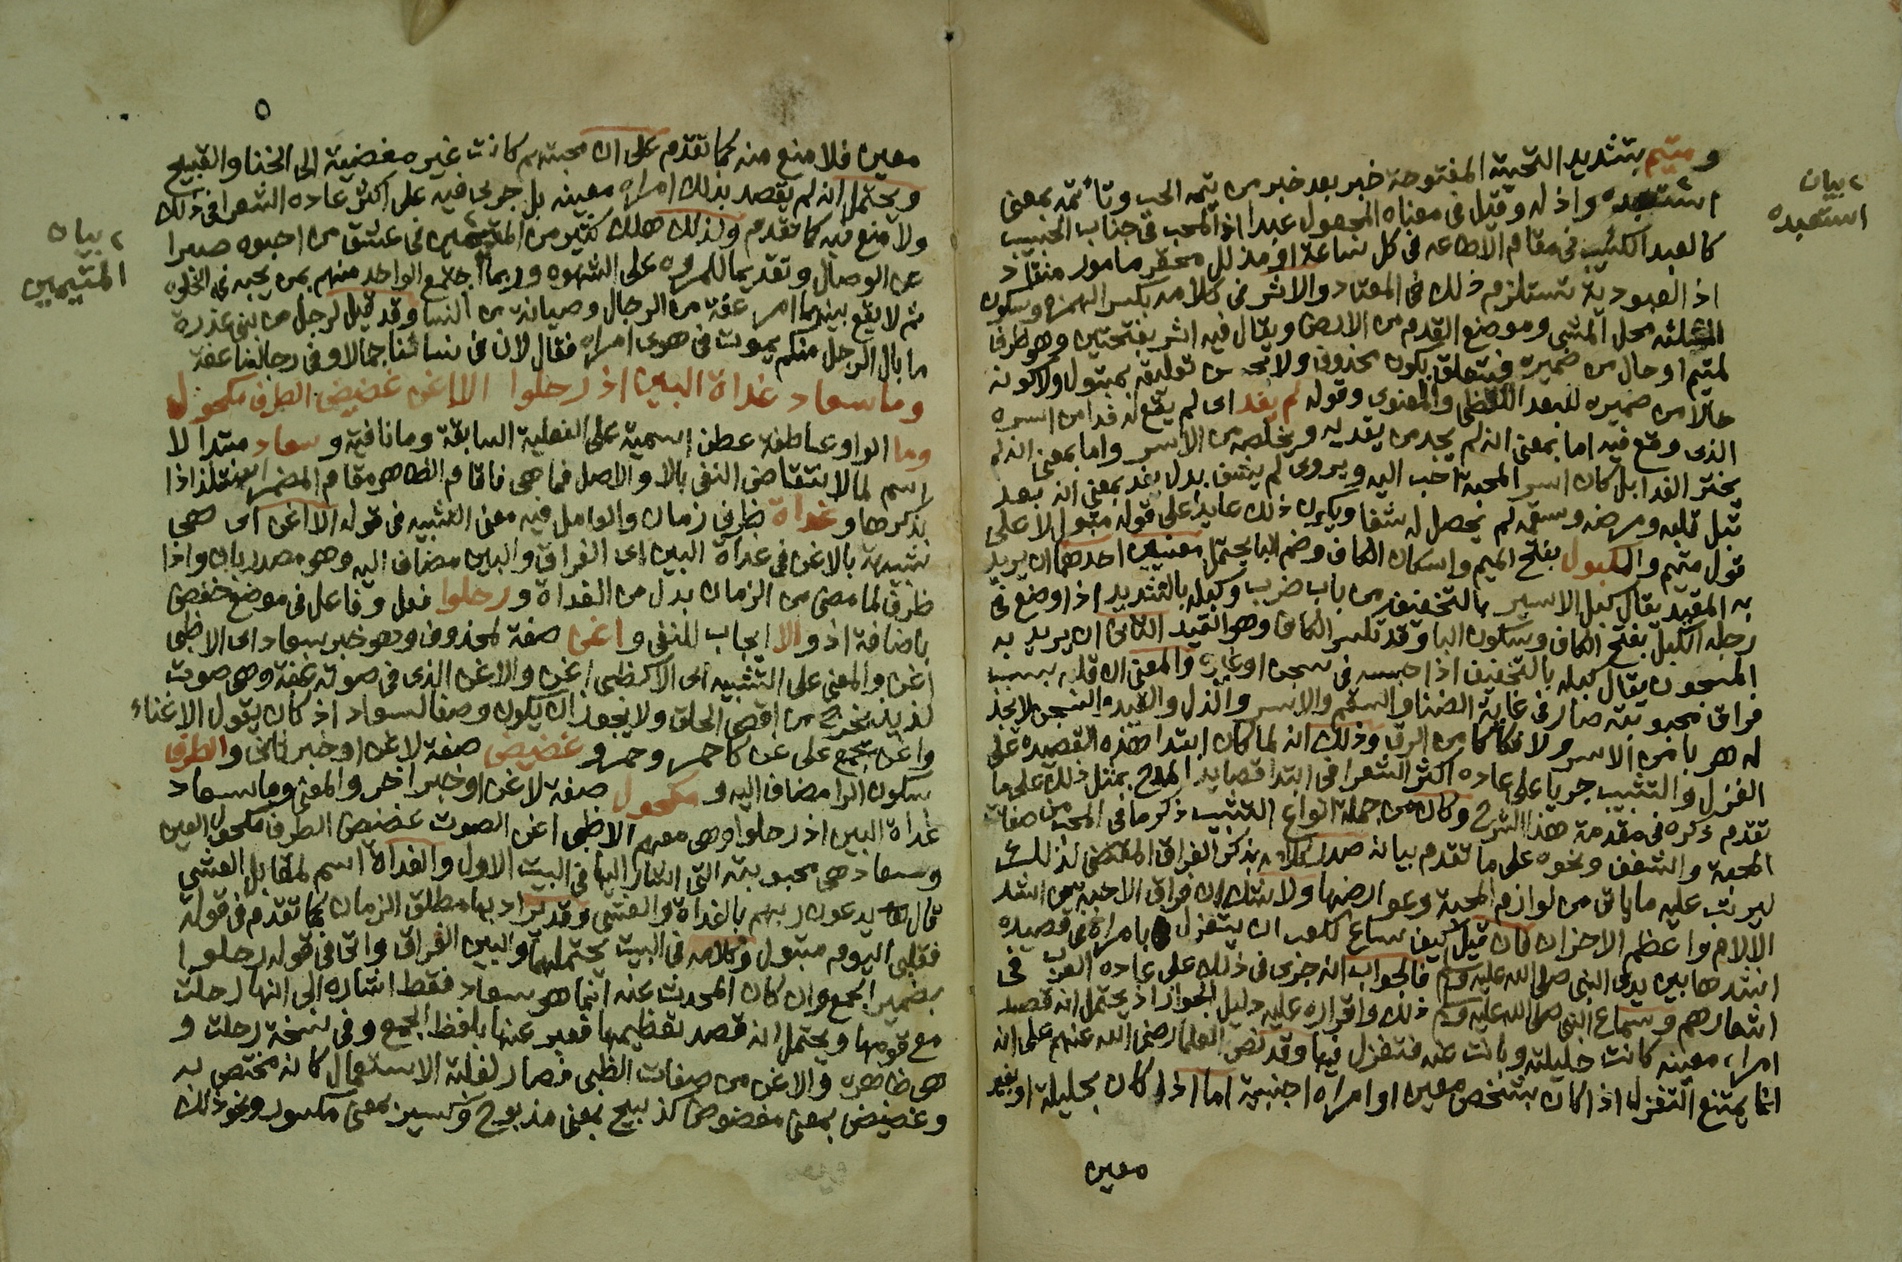 ومتيم بتشديد التحتية المفتوحة خبر بعد خبر من تيمه الحب وتأمته بمعنى
استعبده واذله وقيل في معناه المجعول عبدا اذ المحب في جناب الحبيب
كالعبد الكئيب في مقام الاطاعه في كل ساعة او مذلل محقر مامور منقاد
اذ العبودية تستلزم ذلك في المعتاد والاثر في كلامه بكسر الهمزه وسكون
المثلثه محل المشي وموضع القدم من الارض ويقال فيه اثر بفتحتين وهو ظرف
لمتيم او حال من ضميره فيتعلق بكون محذوف ولا يحسن تعليقه بمتبول ولا كونه
حالا من ضميره للبعد اللفظي والمعنوي وقوله لم يفد اي لم يقع له فدا من اسره
الذي وقع فيه اما بمعنى انه لم يجد من يفديه ويخلصه من الاسر واما بمعنى انه لم
يختر الفدا بل كان اسر المحبة احب اليه ويروى لم يشف بدل يفد بمعنى انه بعد
تبل قلبه ومرضه وسقمه لم يحصل له شفا ويكون ذلك عايدا على قوله متبول لا على
قول متيم والمكبول بفتح الميم واسكان الكاف وضم البا يحتمل معنيين احدهما ان يريد
به المقيد يقال كبل الاسير بالتخفيف من باب ضرب وكبله بالتشديد اذا وضع في
رجله الكبل بفتح الكاف وسكون البا وقد تكسر الكاف وهو القيد الثاني ان يريد به
المسجون يقال كبله بالتخفيف اذا حبسه في سجن او غيره والمعنى ان قلبه بسبب
فراق محبوبته صار في غاية الضنا والسقم والاسر والذل والقيد والسجن لا يجد
له هربا من الاسر ولا فكاكا من الرق وذلك انه لما كان ابتدا هذه القصيده على
الغزل والتشبيب جريا على عاده اكثر الشعرا في ابتدا قصايد المدح بمثل ذلك على ما
تقدم ذكره في مقدمة هذا الشرح وكان من جملة انواع التشبيب ذكر ما في المحب من صفات
المحبة والشغف ونحوه على ما تقدم بيانه صدر كلامه بذكر الفراق المقتضي لذلك
ليرتب عليه ما ياتي من لوازم المحبة وعوارضها ولا شك ان فراق الاحبه من اشد
الالام واعظم الاحزان فان قيل كيف ساغ لكعب ان يتغزل بامراة في قصيده
انشدها بين يدي النبي صلى الله عليه وسلم فالجواب انه جرى في ذلك على عاده العرب في
اشعارهم وسماع النبي صلى الله عليه وسلم ذلك واقراره عليه دليل الجواز اذ يحتمل انه قصد
امراه معينه كانت حليلته وبانت عنه فتغزل فيها وقد نص العلما رضي الله عنهم على انه
انما يمتنع التغزل اذا كان بشخص معين او امراه اجنبية اما اذا كان بحليلته او بغير
معين
٢ بيان
استعبده
٥
معين فلا منع منه كما تقدم على ان محبتهم كانت غير مفضية الى الخنا والقبيح
ويحتمل انه لم يقصد بذلك امراه معينه بل جرى فيه على اكثر عاده الشعرا في ذلك
ولا منع فيه كما تقدم ولذلك هلك كثير من المتيمين في عشق من احبوه صبرا
عن الوصال وتقديما للمروه على الشهوه وربما اجتمع الواحد منهم بمن يحبه في الخلوه
ثم لا يقع بينهما امر عفة من الرجال وصيانة من النسا وقد قيل لرجل من بني عذرة
ما بال الرجل منكم يموت في هوى امراه فقال لان في نسائنا جمالا وفي رجالنا عفة
وما سعاد غداة البين اذ رحلوا الا اغن غضيض الطرف مكحول
وما الواو عاطفة عطف اسمية على الفعلية السابقة وما نافية وسعاد مبتدا لا
اسم لما لانتقاض النفي بالا والاصل فما هي فاقام الظاهر مقام المضمر استلذاذا
بذكرها وغداة ظرف زمان والعامل فيه معنى التشبيه في قوله الا اغن اي هي
تشبهه بالاغن في غداة البين اي الفراق والبين مضاف اليه وهو مصدر بان واذا
ظرف لما مضى من الزمان بدل من الغداة ورحلوا فعل وفاعل في موضع خفض
باضافة اذ والا ايجاب للنفي واغن صفة لمحذوف وهو خبر سعاد اي الا ظبي
اغن والمعنى على التشبيه اي الا كظبي اغن والاغن الذي في صوته غنة وهي صوت
لذيذ يخرج من اقصى الحلق ولا يجوز ان يكون وصفا لسعاد اذ كان يقول الا غناء
واغن يجمع على غن كاحمر وحمر وغضيض صفة لاغن او خبر ثاني والطرف
بسكون الرا مضاف اليه ومكحول صفة لاغن او خبر اخر والمعنى وما سعاد
غداة البين اذ رحلوا وهي معهم الا ظبي اغن الصوت غضيض الطرف مكحول العين
وسعاد هي محبوبته التي اشار اليها في البيت الاول والغداة اسم لمقابل العشي
قال تعالى يدعون ربهم بالغداة والعشي وقد يراد بها مطلق الزمان كما تقدم في قوله
فقلبي اليوم متبول وكلامه في البيت يحتملهما والبين الفراق واتى في قوله رحلوا
بضمير الجمع وان كان المحدث عنه انما هو سعاد فقط اشاره الى انها رحلت
مع قومها ويحتمل انه قصد تعظيمها فعبر عنها بلفظ الجمع وفي نسخة رحلت و
هي ظاهره والاغن من صفات الظبي فصار لغلبة الاستعمال كانه مختص به
وغضيض بمعنى مغضوض كذبيح بمعنى مذبوح وكسير بمعنى مكسور ونحو ذلك
٢ بيان
المتيمين